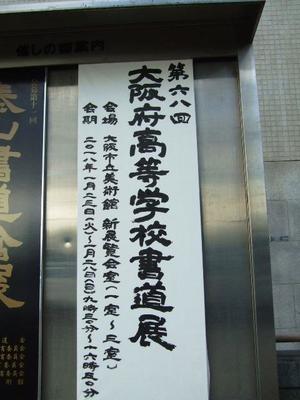 催しの御案内
第六八回
大阪府高等学校書道展
会場 大阪市立美術館 新展覧会室(一室~三室)
会期 二〇一八年一月二三日(火)~一月二八日(日)九時三〇分~十六時三〇分
公募第十一回
書道會展